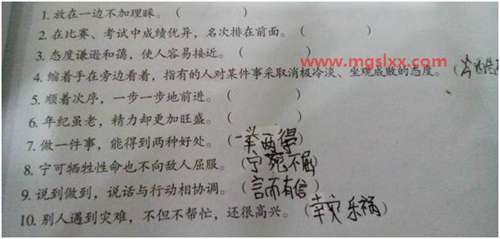 1. 放在一边不加理睬。（ ）
2. 在比赛、考试中成绩优异，名次排在前面。（ ）
www.mgslxx.com
3. 态度谦逊和蔼，使人容易接近。（ ）
4. 缩着手在旁边看着，指有的人对某件事采取消极冷淡、坐观成败的态度。（
5. 顺着次序，一步一步地前进。（ ）
6. 年纪虽老，精力却更加旺盛。（ ）
7. 做一件事，能得到两种好处。（一举两得）
8. 宁可牺牲性命也不向敌人屈服。（宁死不屈）
9. 说到做到，说话与行动相协调。（言而有信）
10. 别人遇到灾难，不但不帮忙，还很高兴。（幸灾乐祸）